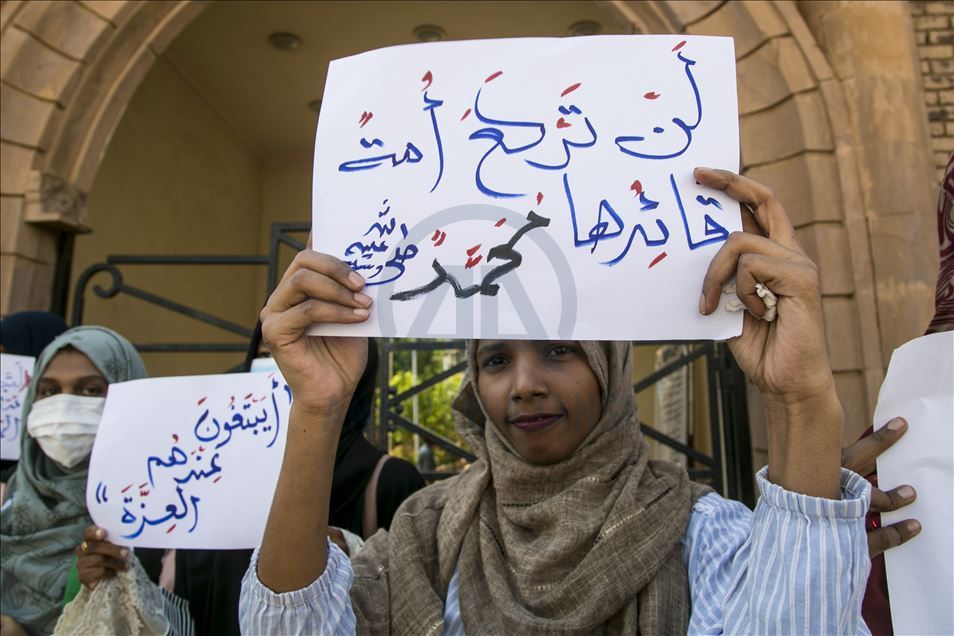 لَن تَركَعَ أُمةً
قائِدُها مُحَمَّدٌ صلى الله عليه وسلم
"أَيَبتَغُونَ
عِندَهُم
العِزَّةَ"
AA